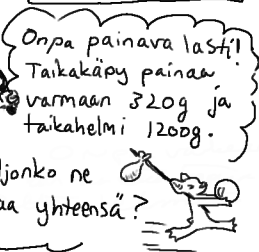 Onpa painava lasti!
Taikakäpy painaa
varmaan 320g ja
taikahelmi 1200g.
ljonko ne
aa yhteensä?